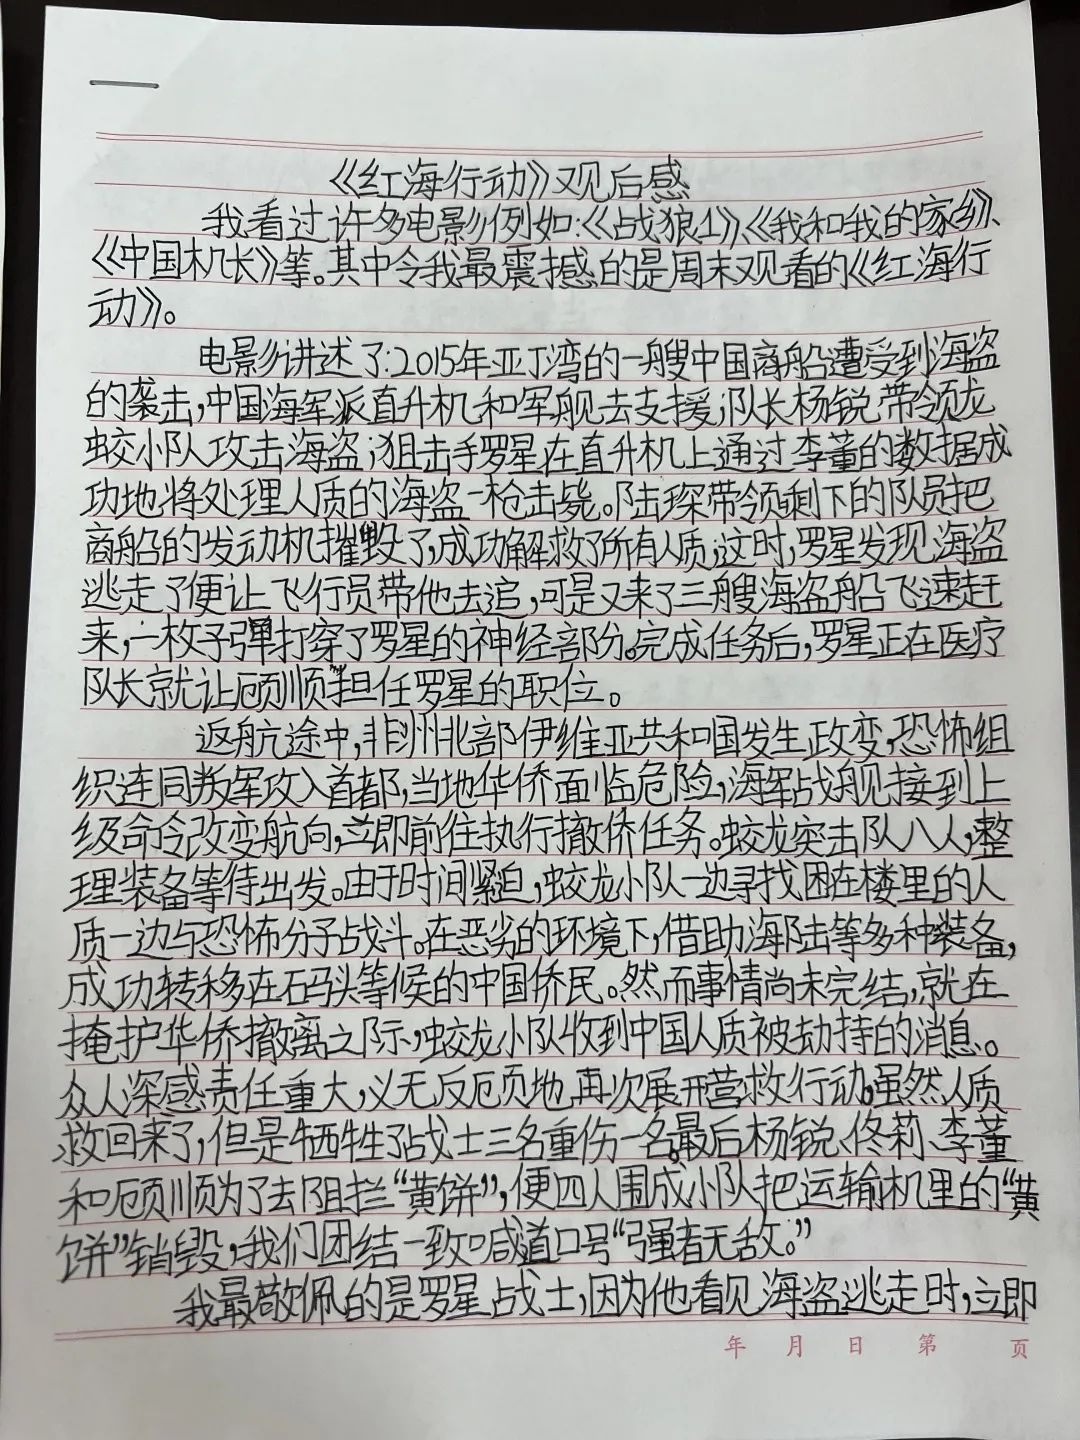 《红海行动》观后感
我看过许多电影例如:《战狼1》、《我和我的家乡》、
《中国机长》等。其中令我最震撼的是周末观看的《红海行
动》。
电影讲述了:2015年亚丁湾的一艘中国商船遭受到海盗
的袭击,中国海军派直升机和军舰去支援;队长杨锐带领龙
蛟小队攻击海盗;狙击手罗星在直升机上通过李董的数据成
功地将处理人质的海盗一枪击毙。陆琛带领剩下的队员把
商船的发动机摧毁了,成功解救了所有人质;这时,罗星发现海盗
逃走了便让飞行员带他去追,可是又来了三艘海盗船飞速赶
来,一枚子弹打穿了罗星的神经部分。完成任务后,罗星正在医疗
队长就让顾顺担任罗星的职位。
返航途中,非洲北部伊维亚共和国发生政变,恐怖组
织连同叛军攻入首都,当地华侨面临危险,海军战舰接到上
级命令改变航向,立即前往执行撤侨任务。蛟龙突击队八人,整
理装备等待出发。由于时间紧迫,蛟龙小队一边寻找困在楼里的人
质一边与恐怖分子战斗。在恶劣的环境下,借助海陆等多种装备,
成功转移在石码头等候的中国侨民。然而事情尚未完结,就在
掩护华侨撤离之际,蛟龙小队收到中国人质被劫持的消息。
众人深感责任重大,义无反顾地再次展开营救行动。虽然人质
救回来了,但是牺牲了战士三名重伤一名。最后杨锐、佟莉、李董
和顾顺为了去阻拦“黄饼”,便四人围成小队把运输机里的“黄
饼”销毁,我们团结一致喊道口号“强者无敌。”
我最敬佩的是罗星战士,因为他看见海盗逃走时,立即
年 月 日 第 页